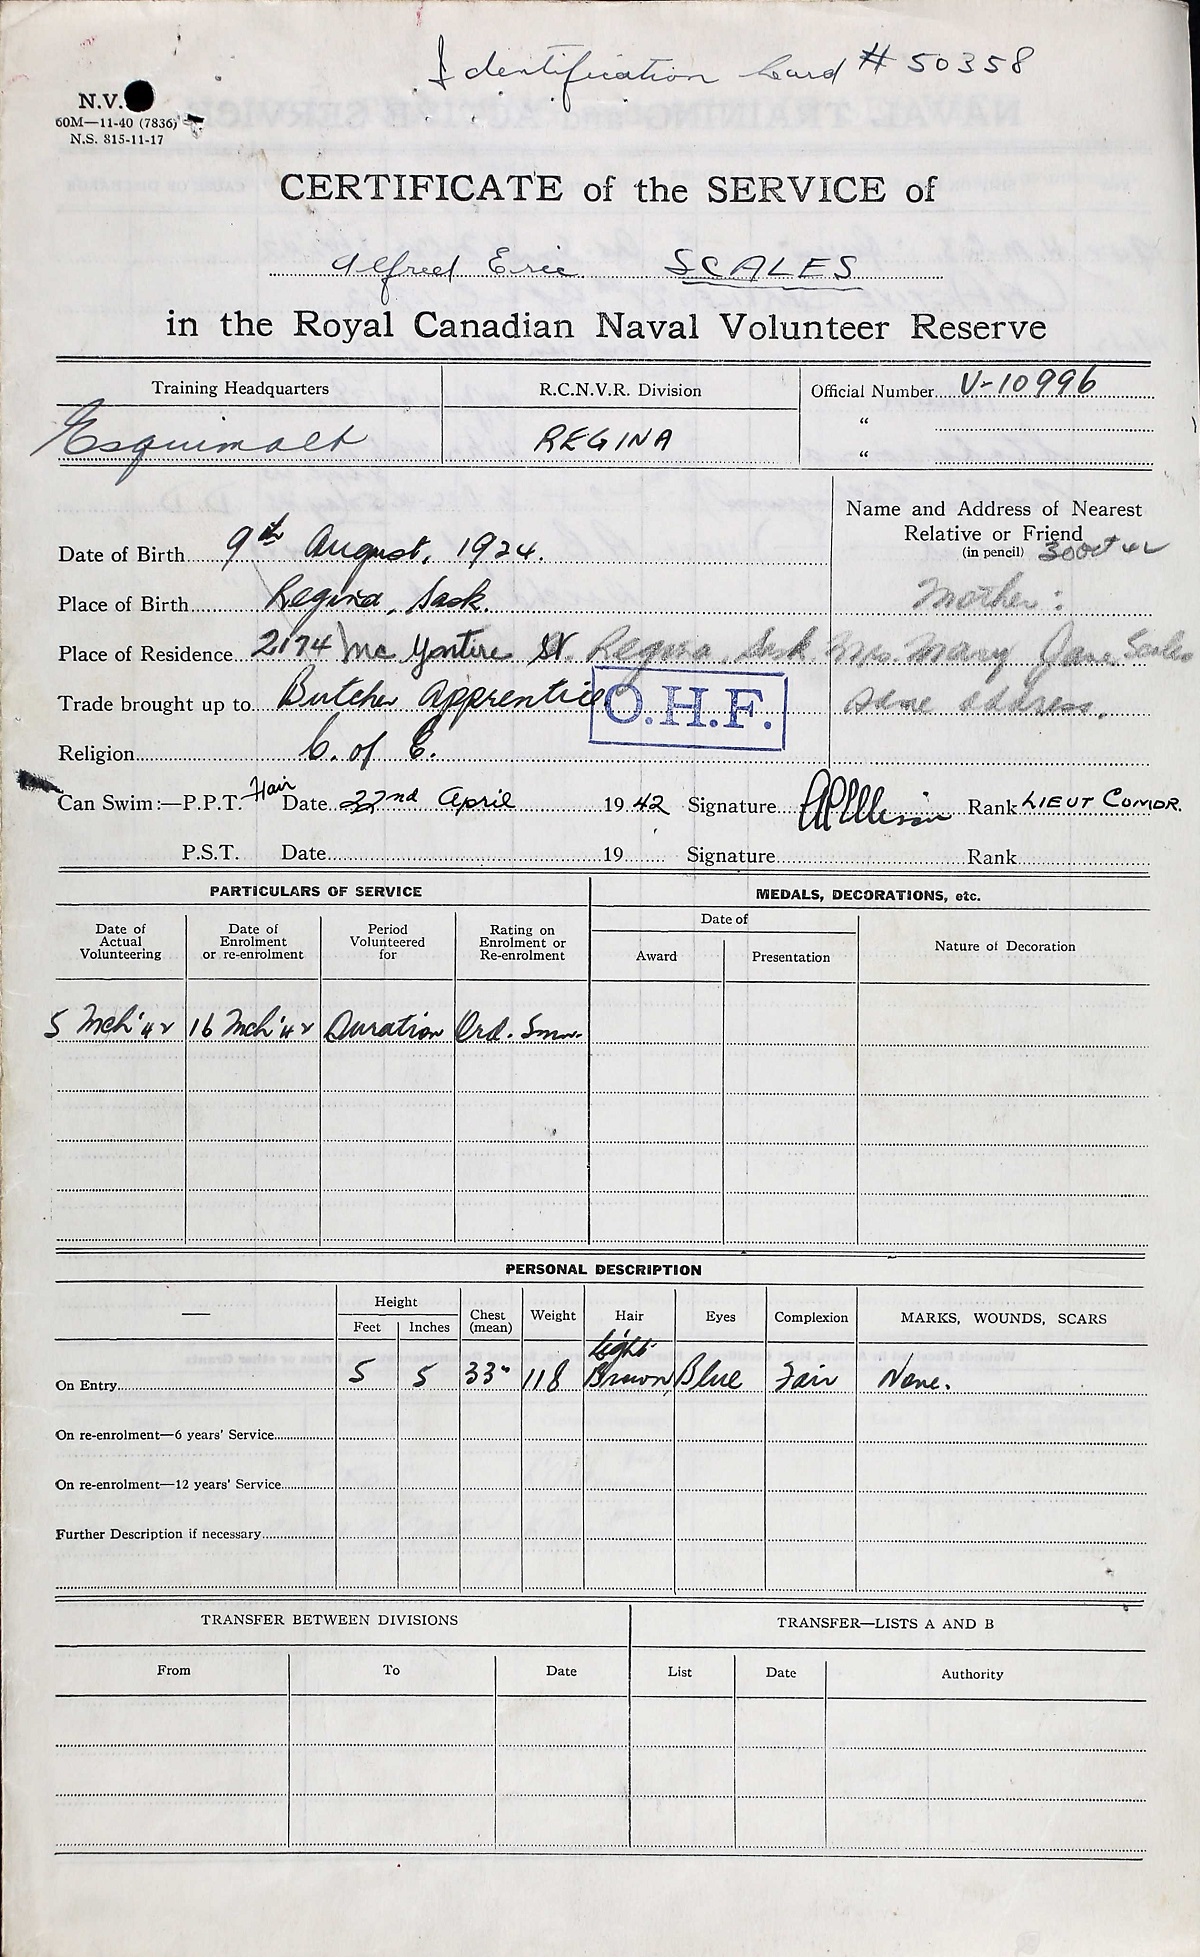 Identification Card # 50358
N.V.
60M—11-40 (7836)
N.S. 815-11-17
CERTIFICATE of the SERVICE of
Alfred Eric SCALES
in the Royal Canadian Naval Volunteer Reserve
Training Headquarters
Esquimalt
R.C.N.V.R. Division
REGINA
Official Number V-10996
"
"
Name and Address of Nearest
Relative or Friend
(in pencil) 30 Oct 42
Mother:
Mrs. Mary Jane Scales
Same address.
Date of Birth 9th August, 1924.
Place of Birth Regina, Sask.
Place of Residence 2174 Mc Yntire St. Regina, Sask
Trade brought up to Butcher Apprentice
O.H.F.
Religion C. of E.
Can Swim:—P.P.T. Fair Date 22nd April 1942 Signature Rank LIEUT COMDR.
P.S.T. Date 19 Signature Rank
PARTICULARS OF SERVICE
Date of Actual Volunteering
Date of Enrolment or re-enrolment
Period Volunteered for
Rating on Enrolment or Re-enrolment
5 Mch '42 16 Mch '42 Duration Ord. Smn.
MEDALS, DECORATIONS, etc.
Date of
Award Presentation
Nature of Decoration
PERSONAL DESCRIPTION
— Height Chest (mean) Weight Hair Eyes Complexion MARKS, WOUNDS, SCARS
Feet Inches
On Entry 5 5 33" 118 light Brown Blue Fair None.
On re-enrolment—6 years' Service
On re-enrolment—12 years' Service
Further Description if necessary
TRANSFER BETWEEN DIVISIONS
From To Date
TRANSFER—LISTS A AND B
List Date Authority